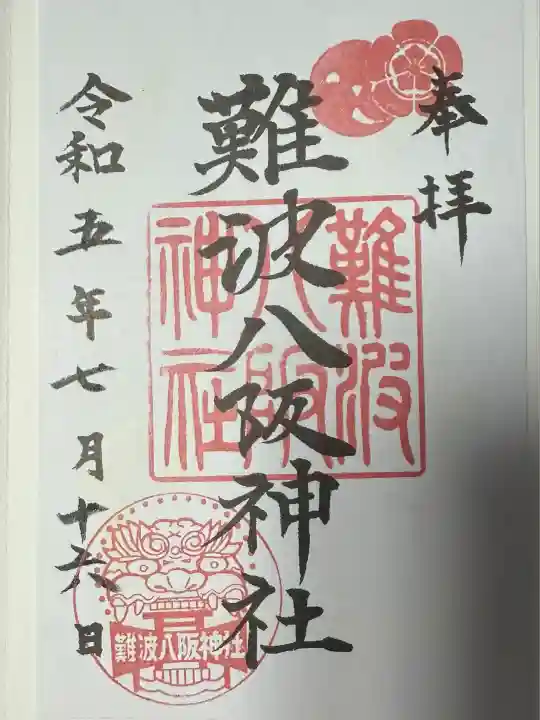 奉拝
難波八阪神社
難波
八阪
神社
令和五年七月十六日
難波八阪神社